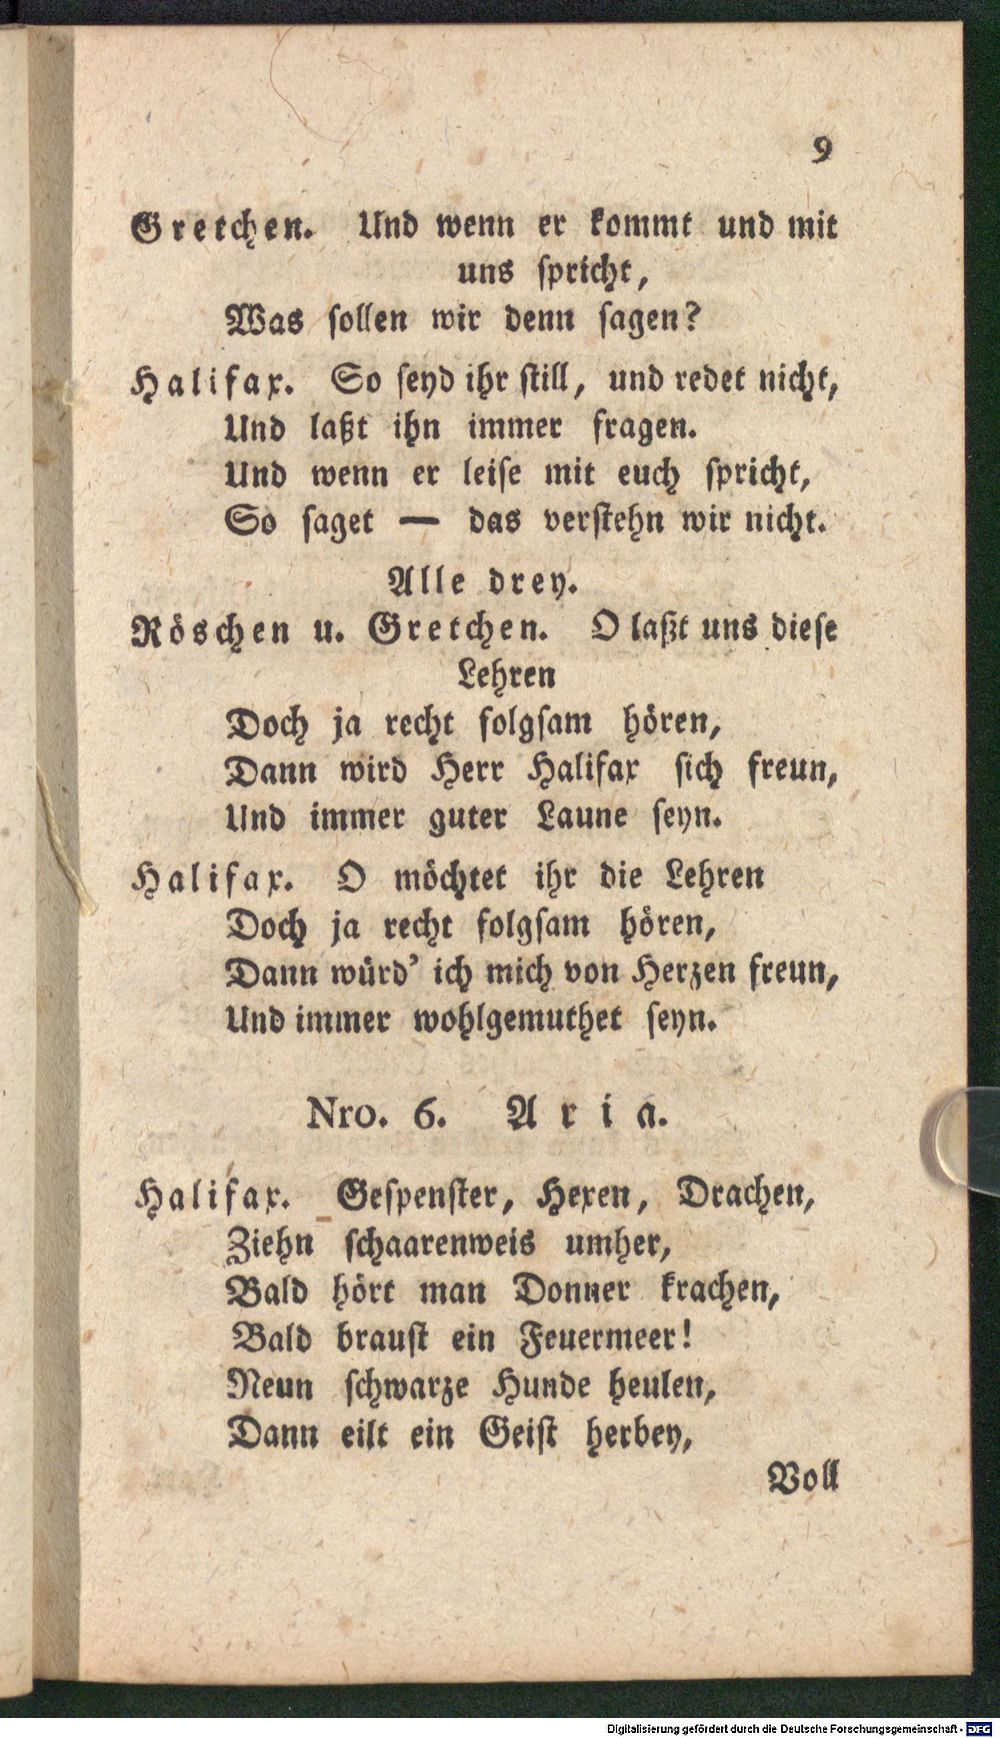 9
Gretchen. Und wenn er kommt und mit
uns spricht,
Was sollen wir denn sagen?
Halifax. So seyd ihr still, und redet nicht,
Und laßt ihn immer fragen.
Und wenn er leise mit euch spricht,
So saget — das verstehn wir nicht.
Alle drey.
Röschen u. Gretchen. O laßt uns diese
Lehren
Doch ja recht folgsam hören,
Dann wird Herr Halifax sich freun,
Und immer guter Laune seyn.
Halifax. O möchtet ihr die Lehren
Doch ja recht folgsam hören,
Dann würd' ich mich von Herzen freun,
Und immer wohlgemuthet seyn.
Nro. 6. Aria.
Halifax. Gespenster, Hexen, Drachen,
Ziehn schaarenweis umher,
Bald hört man Donner krachen,
Bald braust ein Feuermeer!
Neun schwarze Hunde heulen,
Dann eilt ein Geist herbey,
Voll
Digitalisierung gefördert durch die Deutsche Forschungsgemeinschaft - DFG